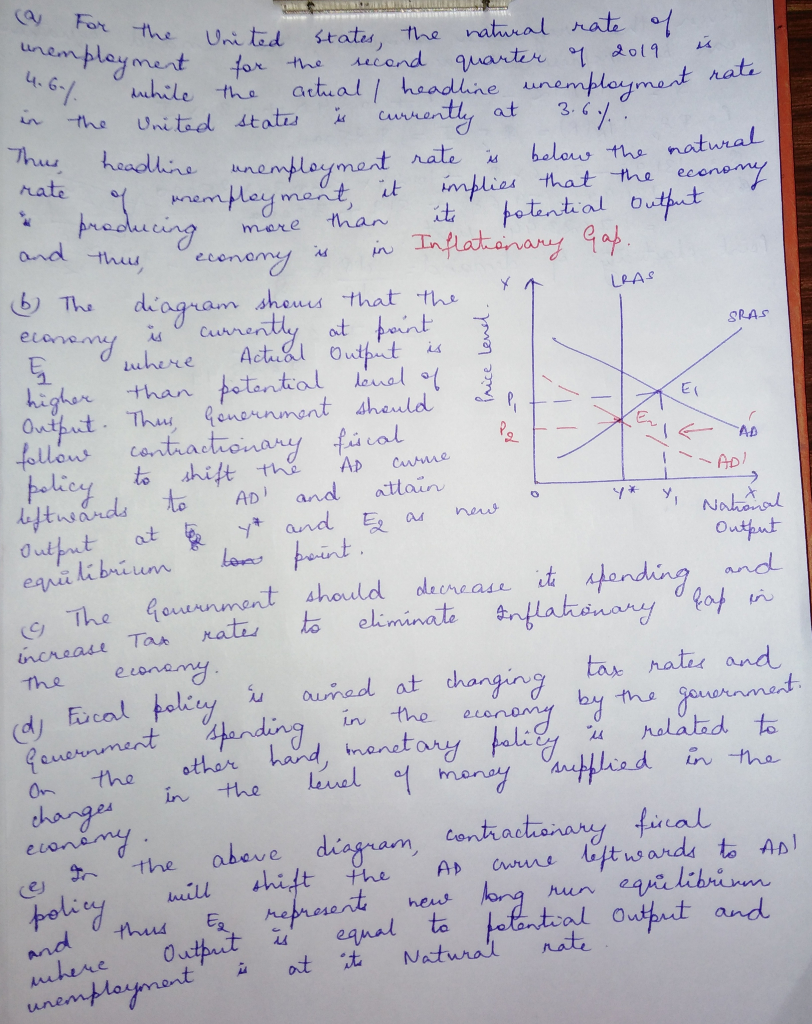 (a) For the United States, the natural rate of
unemployment for the second quarter of 2019 is
4.6% while the actual / headline unemployment rate
in the United States is currently at 3.6%.
Thus, headline unemployment rate is below the natural
rate of unemployment, it implies that the economy
is producing more than its potential Output
and thus, economy is in Inflationary Gap.
(b) The diagram shows that the
economy is currently at point
E1 where Actual Output is
higher than potential level of
Output. Thus, Government should
follow contractionary fiscal
policy to shift the AD curve
leftwards to AD' and attain
Output at Y* and E2 as new
equilibrium point.
Y
LRAS
SRAS
Price Level.
P1
E1
P2
E2
AD
AD'
0
Y*
Y1
X
National
Output
(c) The Government should decrease its spending and
increase Tax rates to eliminate Inflationary Gap in
the economy.
(d) Fiscal policy is aimed at changing tax rates and
Government spending in the economy by the government.
On the other hand, monetary policy is related to
changes in the level of money supplied in the
economy.
(e) In the above diagram, contractionary fiscal
policy will shift the AD curve leftwards to AD'
and thus E2 represents new long run equilibrium
where Output is equal to potential Output and
unemployment is at its Natural rate.